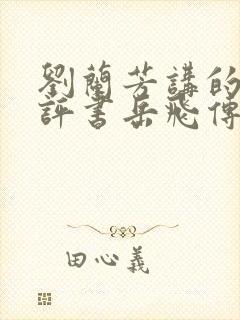 劉蘭芳講的
評書岳飛傳
田心義